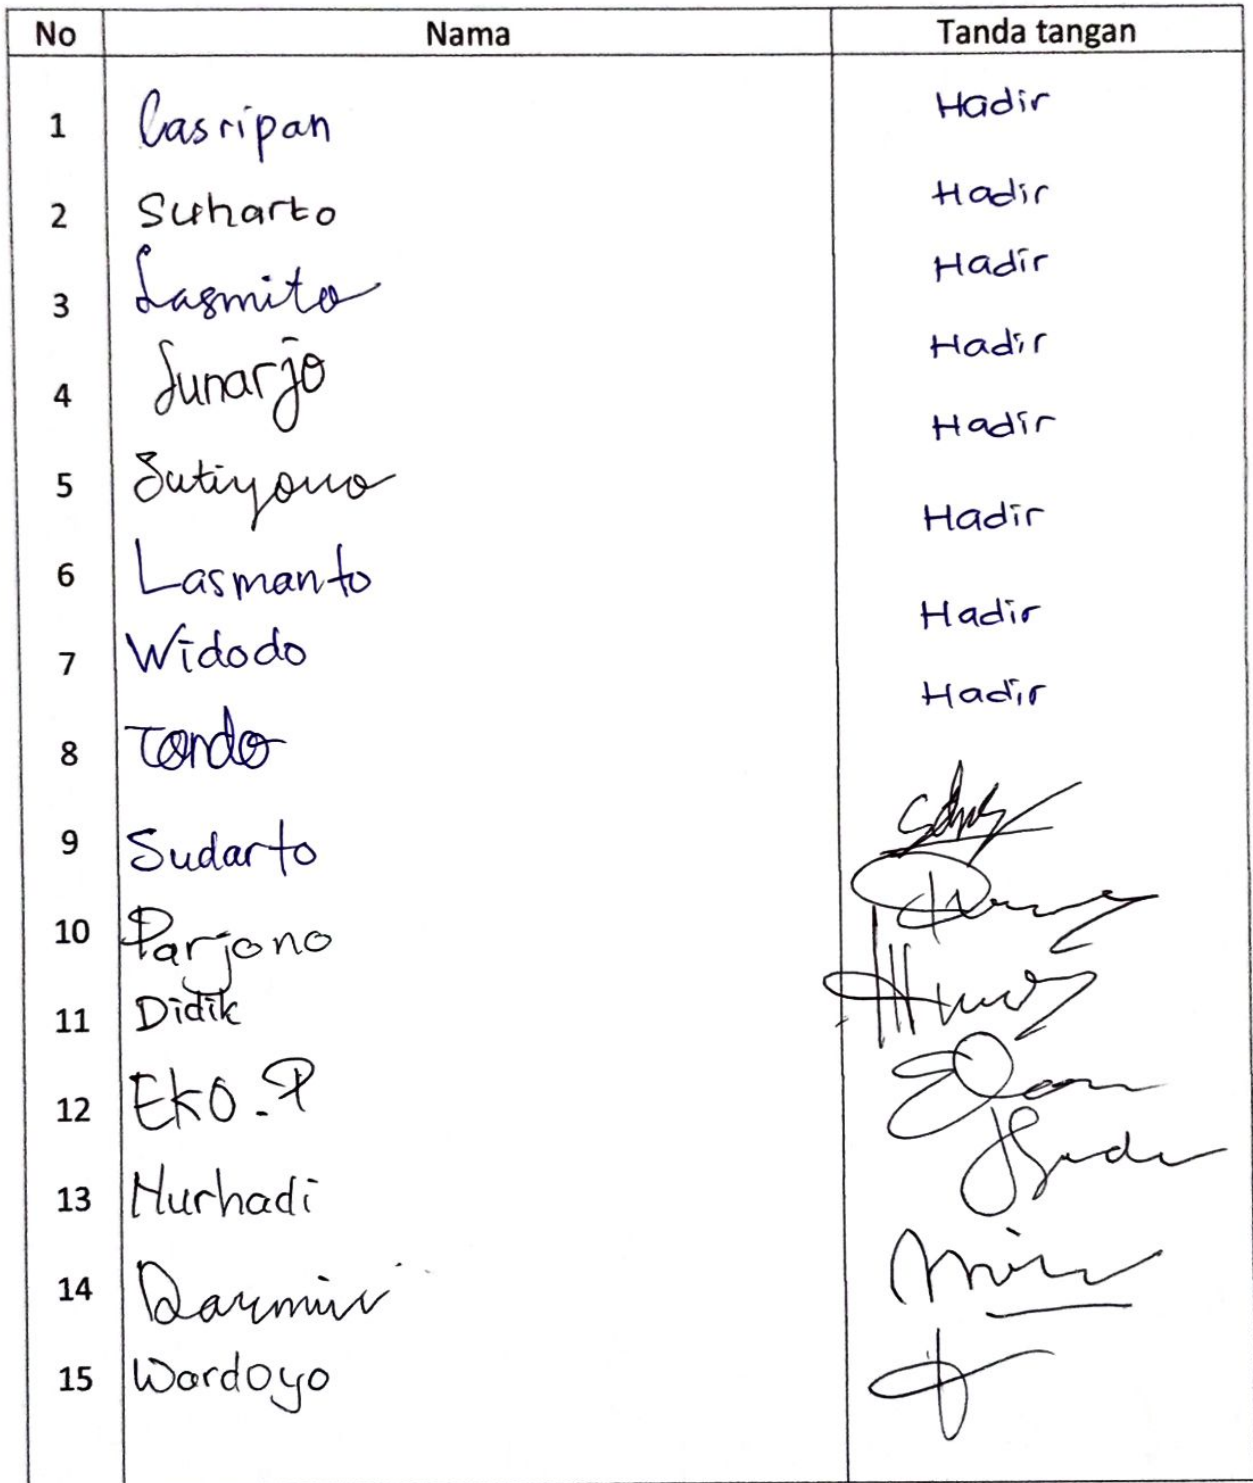 No Nama Tanda tangan
1 Casripan Hadir
2 Suharto Hadir
3 Lasmito Hadir
4 Sunarjo Hadir
5 Sutiyono Hadir
6 Lasmanto Hadir
7 Widodo Hadir
8 Tondo Hadir
9 Sudarto
10 Parjono
11 Didik
12 Eko.P
13 Nurhadi
14 Darmin
15 Wardoyo